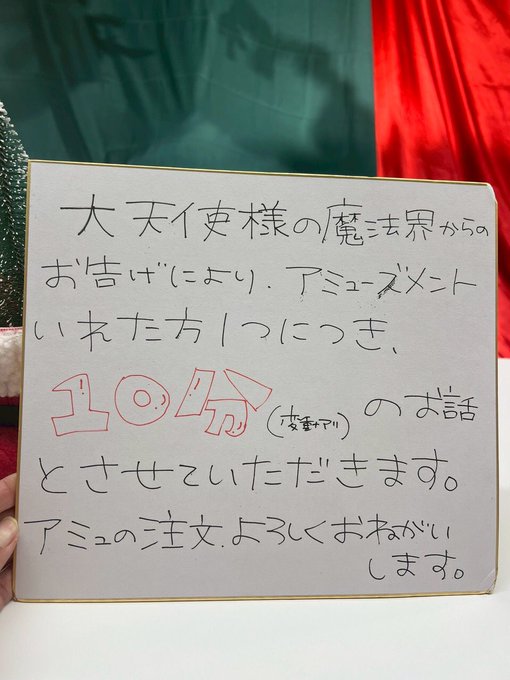 大天使様の魔法界からの
お告げにより、アミューズメント
いれた方1つにつき、
10分(変動アリ)のお話
とさせていただきます。
アミュの注文、よろしくおねがい
します。